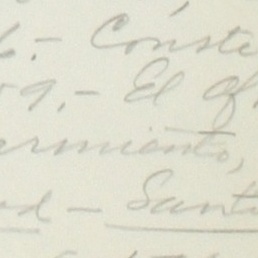 6.- Conste
59.- El Of
ermiento,
od - Santi